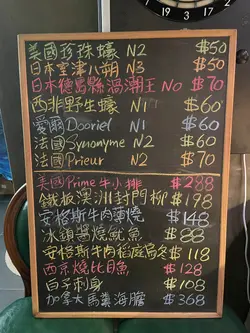 美國珍珠蠔 N2 $50
日本室津八朔 N3 $50
日本德島縣渦潮王 No $70
西非野生蠔 N1 $60
愛爾Dooriel N1 $60
法國Synonyme N2 $60
法國Prieur N2 $70
美國Prime牛小排 $288
鐵板漢川封門柳 $198
安格斯牛肉薄燒 $148
冰鎮醬燒魷魚 $88
安格斯牛肉稻庭烏冬 $118
西京燒比目魚 $128
白子刺身 $108
加拿大馬糞海膽 $368